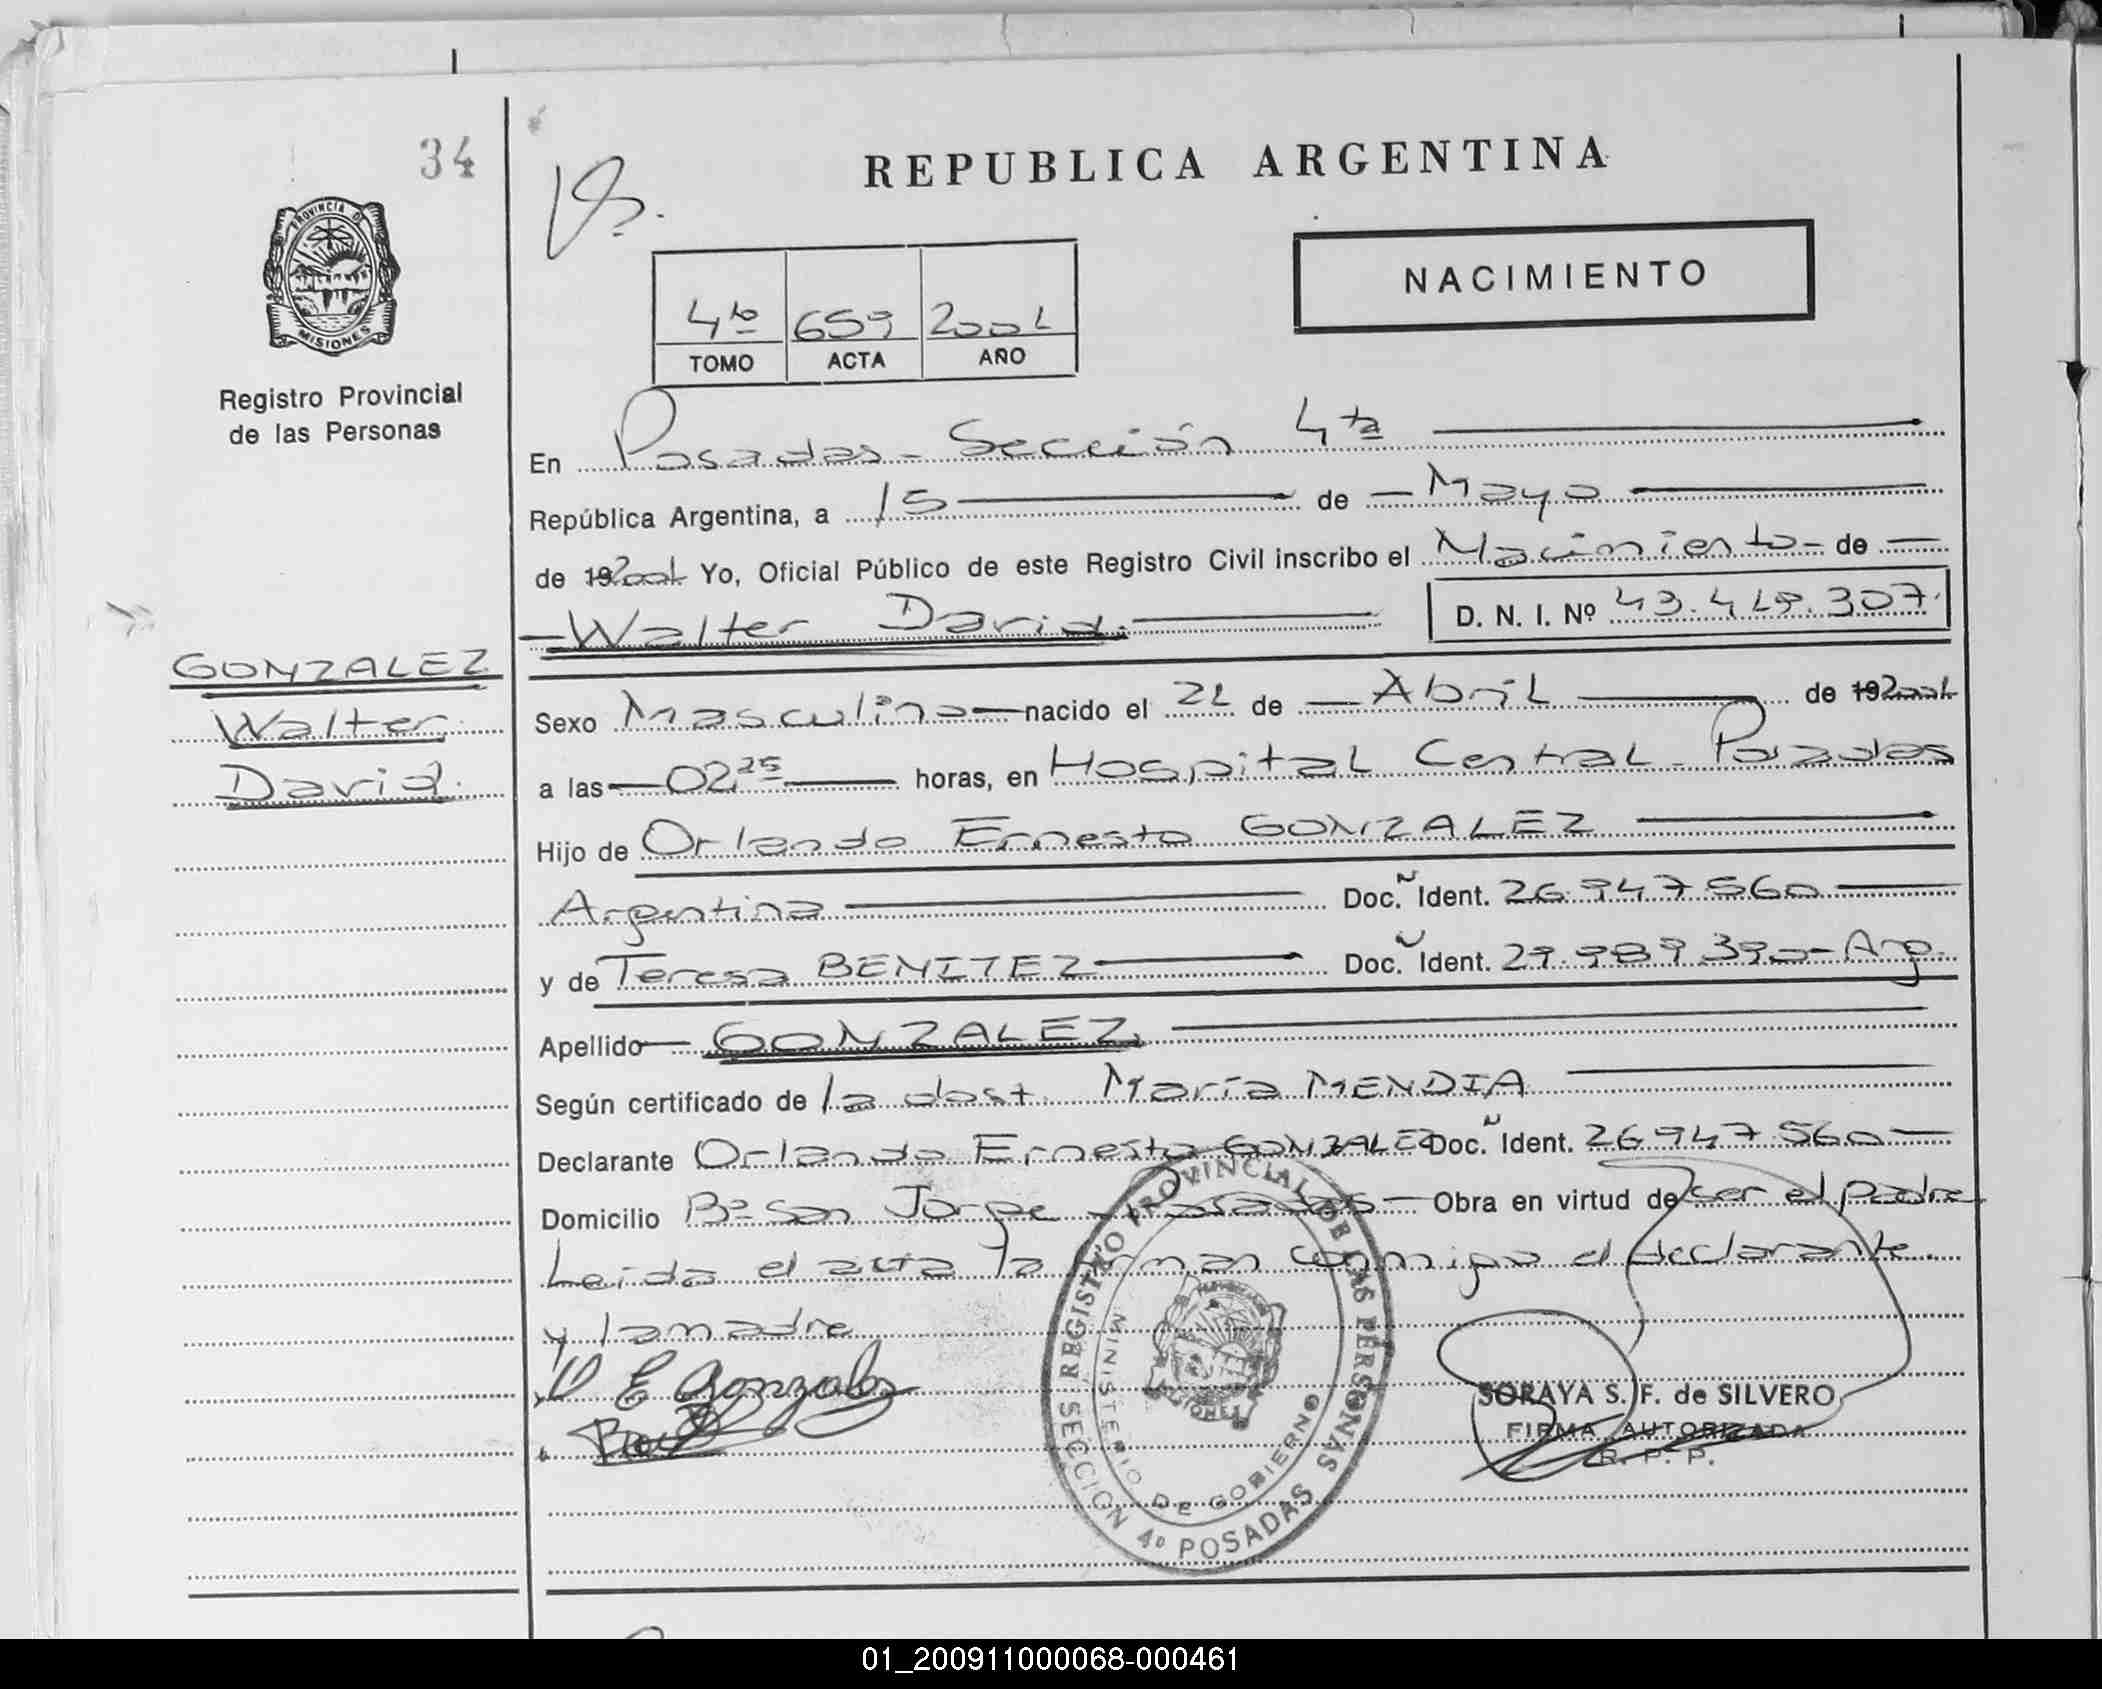 34
REPUBLICA ARGENTINA
PROVINCIA DE
MISIONES
NACIMIENTO
4to 659 2001
TOMO ACTA AÑO
Registro Provincial
de las Personas
En Posadas - Sección 4ta
República Argentina, a 15 de Mayo
de 192001 Yo, Oficial Público de este Registro Civil inscribo el Nacimiento de
Walter David. D. N. I. Nº 43.419.307
GONZALEZ
Walter
David.
Sexo Masculino nacido el 21 de Abril de 192001
a las 02 25 horas, en Hospital Central - Posadas
Hijo de Orlando Ernesto GONZALEZ
Argentina Doc. Ident. 26.947.560
y de Teresa BENITEZ Doc. Ident. 29.989.390 - Arg.
Apellido GONZALEZ
Según certificado de la obst. María MENDIA
Declarante Orlando Ernesto GONZALEZ Doc. Ident. 26.947.560
Domicilio Bº San Jorge - Posadas Obra en virtud de ser el padre
Leida el acta la firman conmigo el declarante
y la madre
O E Gonzalez
REGISTRO PROVINCIAL DE LAS PERSONAS
SECCION 4º POSADAS
MINISTERIO DE GOBIERNO
SORAYA S. F. de SILVERO
FIRMA AUTORIZADA
R. P. P.
01_200911000068-000461